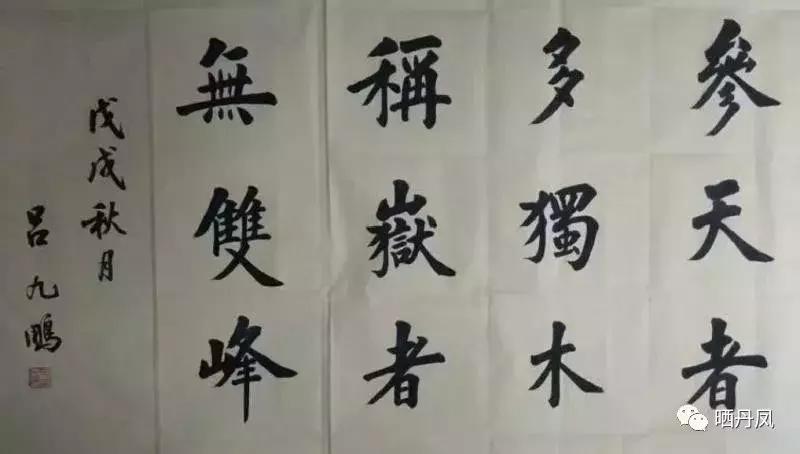 參天者
多獨木
稱嶽者
無雙峰
戊戌秋月
吕九鵬
晒丹凤